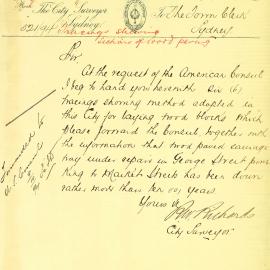 The City Surveyor
Sydney
To The Town Clerk
Sydney
Tracings showing
Sections of Wood paving
Sir
At the request of the American Consul
I beg to hand you herewith six (6)
tracings showing method adopted in
this City for laying wood blocks which
please forward the Consul together with
the information that wood paved carriage
way under repair in George Street from
King to Market Streets has been down
rather more than ten (10) years
Yours &c
Richards
City Surveyor
Forwarded to